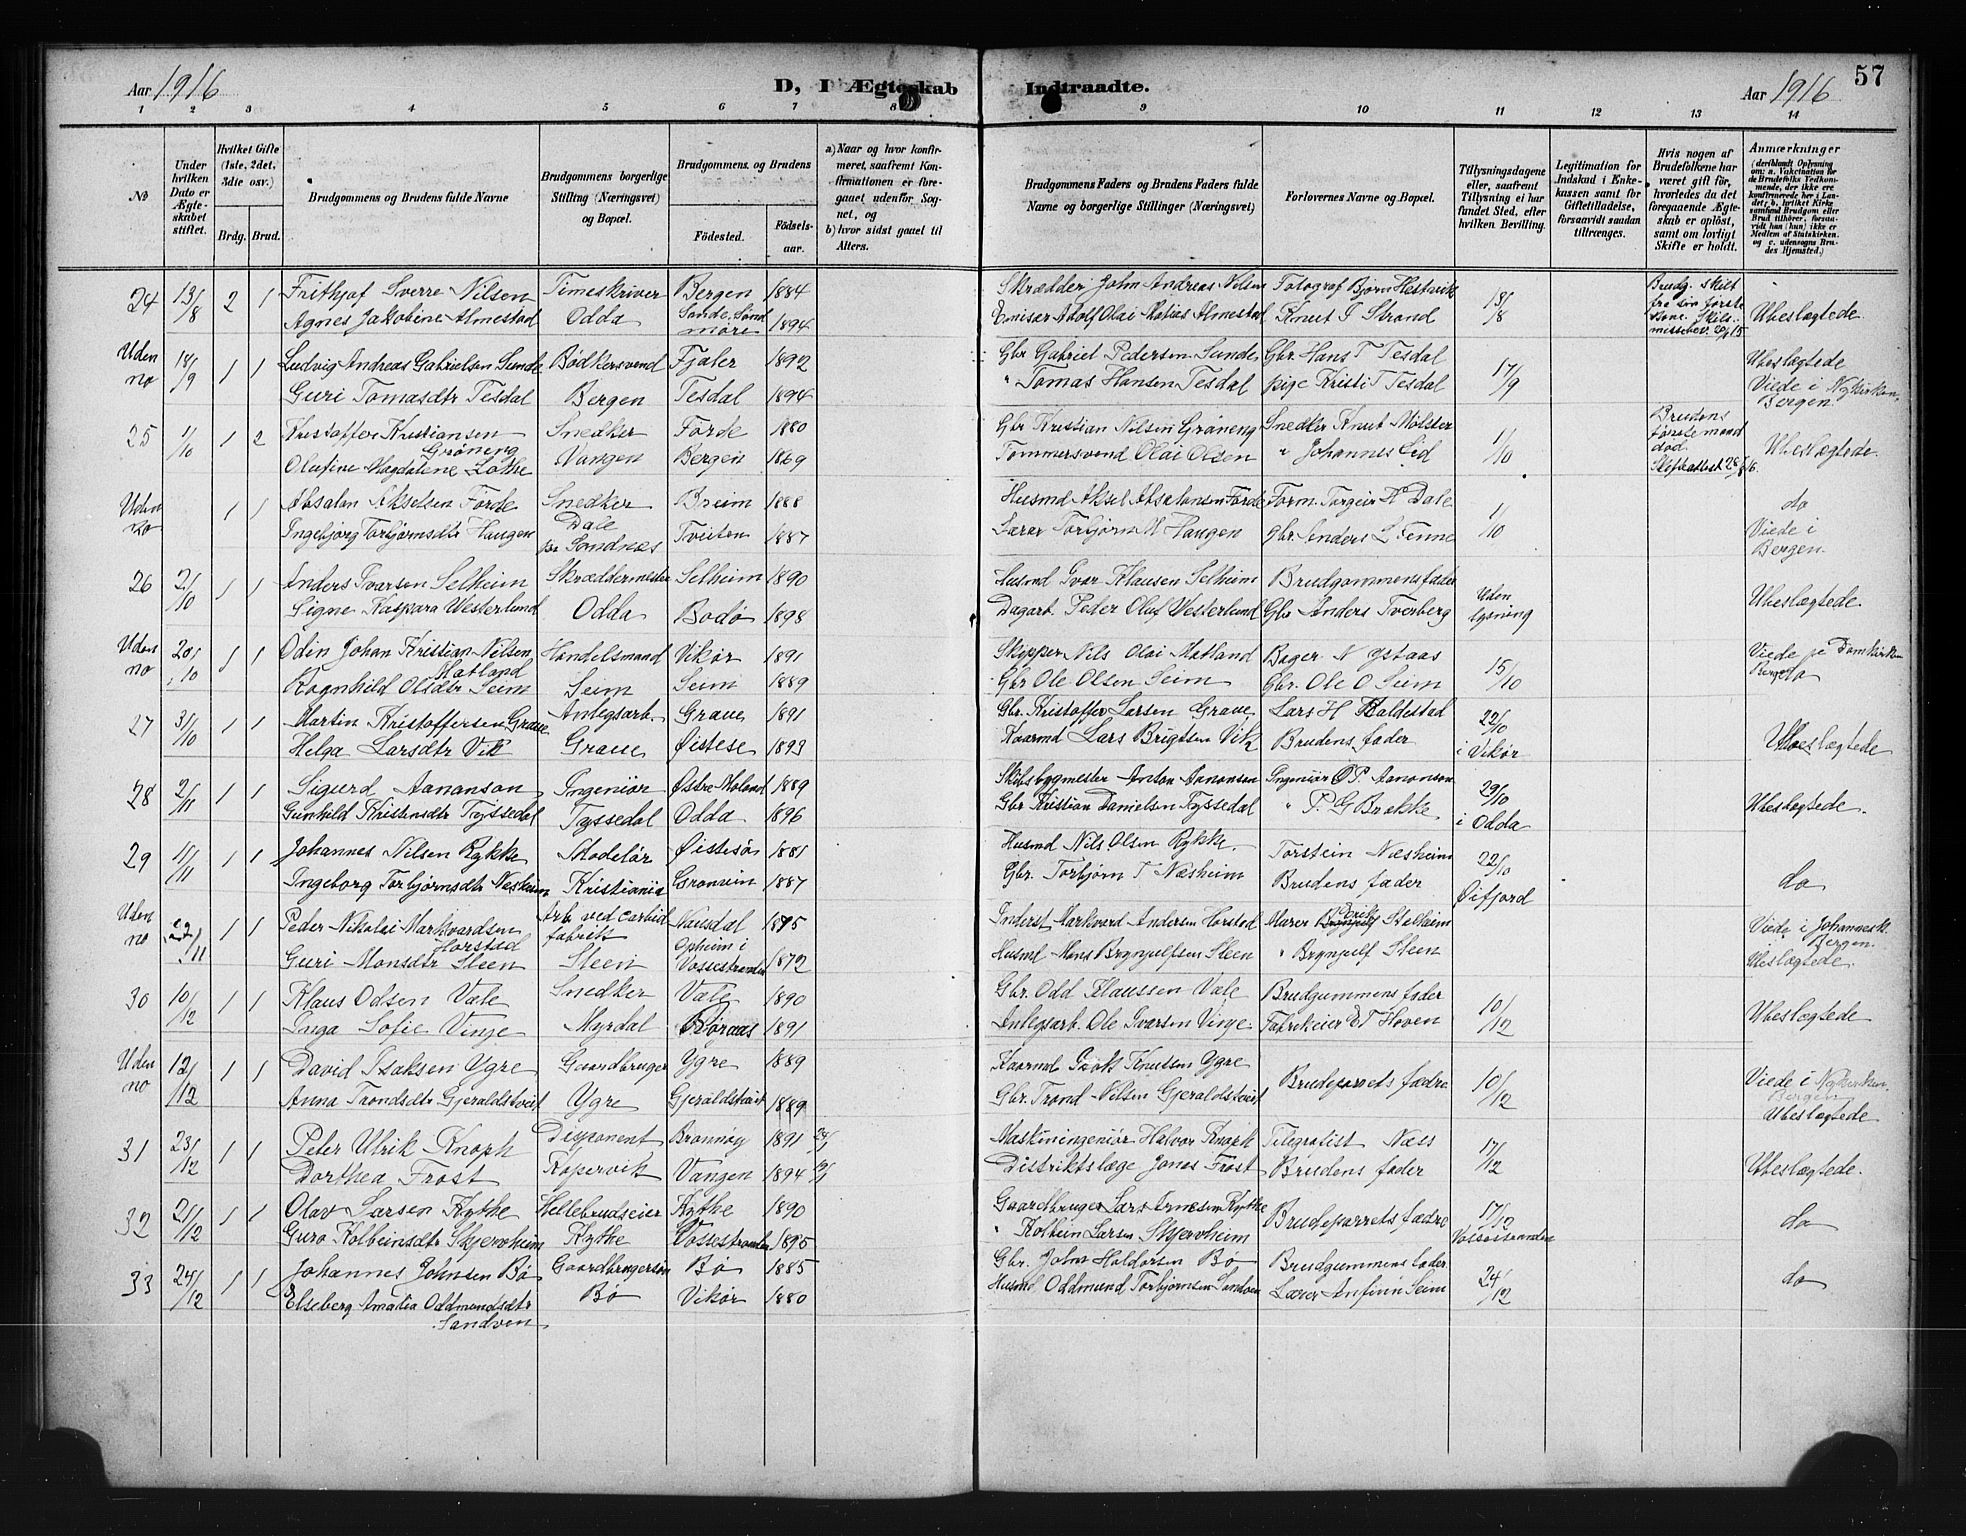 Aar 1916
D, I Ægteskab Indtraadte.
Aar 1916
57
1 2 3 4 5 6 7 8 9 10 11 12 13 14
No
Under hvilken Dato er Ægteskabet stiftet.
Hvilket Gifte (1ste, 2det, 3die osv.)
Brdg. Brud.
Brudgommens og Brudens fulde Navne
Brudgommens borgerlige Stilling (Næringsvei) og Bopæl.
Brudgommens og Brudens
Fødested.
Fødselsaar.
a) Naar og hvor konfirmeret, saafremt Konfirmationen er foregaaet udenfor Sognet, og
b) hvor sidst gaaet til Alters.
Brudgommens Faders og Brudens Faders fulde Navne og borgerlige Stillinger (Næringsvei)
Forlovernes Navne og Bopæl.
Tillysningsdagene eller, saafremt Tillysning ei har fundet Sted, efter hvilken Bevilling.
Legitimation for Indskud i Enkekassen samt for Giftetilladelse, forsaavidt saadan tiltrænges.
Hvis nogen af Brudefolkene har været gift før, hvorledes da det foregaaende Ægteskab er opløst, samt om lovligt Skifte er holdt.
Anmærkninger
(deriblandt Oplysning om: a. Vakcination for de Brudefolks Vedkommende, der ikke ere konfirmerede her i Landet; b. hvilket Kirkesamfund Brudgom eller Brud tilhører, forsaavidt han (hun) ikke er Medlem af Statskirken og c. udensogns Brudes Hjemsted.)
24 13/8 2 1 Frithjof Sverre Nilsen Timeskriver Bergen 1884 Skrædder John Andreas Nilsen Fotograf Bjørn Hestevik 13/8 Brudg. skilt fra sin første Kone.
Agnes Jakobine Almestad Odda Sande, Søndmøre 1894 Adolf Olai Almestad Knut T Strand Ubeslægtede
Uden no 18/9 1 1 Ludvig Andreas Gabrielsen Sunde Bødkersvend Fjaler 1892 Gbr Gabriel Pedersen Sunde Gbr. Hans T Tesdal 17/9 Ubeslægtede
Guri Tomasdtr Tesdal Bergen Tesdal 1894 " Tomas Hansen Tesdal pige Kristi T Tesdal Viede i Nykirken, Bergen.
25 1/10 1 2 Kristoffer Kristiansen Grøneng Snedker Førde 1880 Gbr Kristian Nilsen Grøneng Snedker Knut Mølster 1/10 Brudens første mand død
Olufine Magdalene Lothe Vangen Bergen 1869 Tømmersvend Olai Olsen " Johannes Lid Ubeslægtede
Uden no 1 1 Absalon Akselsen Førde Snedker Breim 1888 Husmd Aksel Absalonsen Førde Form. Torgeir K Dale 1/10 do
Ingebjørg Torbjørnsdtr Haugen Dale pr Tviten 1887 Lærer Torbjørn M Haugen Gbr. Anders L Fenne Viede i Bergen.
26 2/10 1 1 Anders Ivarsen Selheim Skræddermester Selheim 1890 Husmd Ivar Klausen Selheim Brudgommens fader Uden lysning
Signe Kaspara Westerlund Odda Bodø 1898 Dagarb. Peder Oluf Westerlund Gbr Anders Tverberg Ubeslægtede.
Uden no 20/10 1 1 Odin Johan Kristian Nilsen Matland Handelsmand Vikør 1891 Skipper Nils Olai Matland Bager N Ystaas 15/10 Viede i Domkirken
Ragnhild Olsdtr Seim Seim Seim 1889 Gbr Ole Olsen Seim Gbr. Ole O Seim do
27 31/10 1 1 Martin Kristoffersen Graue Anlegsarb. Graue 1891 Gbr. Kristoffer Larsen Graue Lars H Baldestad 22/10 i Vikør
Helga Larsdtr Vik Graue Øistese 1893 Kaarmd Lars Brigtsen Vik Brudens fader Ubeslægtede
28 2/11 1 1 Sigurd Aananson Ingeniør Østre Moland 1889 Skibsbygmester Anton Aananson Ingeniør O P. Aananson 29/10 i Odda
Gunhild Kristensdtr Tyssedal Tyssedal Odda 1896 Gbr Kristian Danielsen Tyssedal " P. G Brekke Ubeslægtede.
29 11/11 1 1 Johannes Nilsen Rykke Modelør Øistesø 1881 Husmd Nils Olsen Rykke. Torstein Næsheim 22/10 Øifjord
Ingeborg Torbjørnsdtr Næsheim Kristiania Granvin 1887 Gbr. Torbjørn T Næsheim Brudens fader do
Uden no /11 1 1 Peder Nikolai Markvardsen Horstad Arb ved carbidfabrik Naustdal 1875 Inderst Markvard Andersen Horstad Stalheim Viede i Johannesk. Bergen.
Guri Monsdtr Steen Steen Opheim i Vossestranden 1872 Husmd Mons Brynjulfsen Steen " Brynjulf Steen Ubeslægtede.
30 10/12 1 1 Klaus Odsen Vale Snedker Vale 1890 Gbr. Odd Klaussen Vale Brudgummens fader 10/12
Inga Sofie Vinje Myrdal Røraas 1891 Anlegsarb. Ole Ivarsen Vinje Fabrikeier E T Hoven Ubeslægtede
Uden no 12/12 1 1 David Isaksen Ygre Gaardbruger Ygre 1889 Kaarmd Isak Knutsen Ygre Brudeparrets fædre 10/12 Viede i Nykirken Bergen
Anna Trondsdtr Gjeraldstveit Ygre Gjeraldstveit 1889 Gbr. Trond Nilsen Gjeraldstveit Ubeslægtede
31 23/12 1 1 Peter Ulrik Knoph Disponent Brønnøy 1891 Maskiningeniør Halvor Knoph Telegrafist Næss 17/12
Dorthea Frost Kopervik Vangen 1894 Distriktslæge Jonas Frost Brudens fader Ubeslægtede.
32 21/12 1 1 Olav Larsen Kythe Hellebrudseier Kythe 1890 Gaardbruger Lars Arnesen Kythe Brudeparrets fædre 17/12 Vossestranden
Guro Kolbeinsdtr Skjerveheim Kythe Vossestranden 1895 " Kolbein Larsen Skjerveheim do
33 24/12 1 1 Johannes Johnsen Bø Gaardbrugersøn Bø 1885 Gbr. John Haldorsen Bø Brudgummens fader 24/12
Elseberg Amalia Oddmundsdtr Sandven Bø Vikør 1880 Husmd Oddmund Torbjørnsen Sandven Lærer Anfinn Seim do